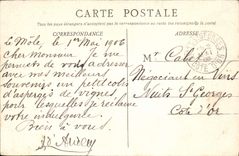 CARTE POSTALE
CORRESPONDANCE
Le Môle, le 1er Mai 1906
Cher Monsieur Je me
permets de vous adresser
avec mes meilleurs
souvenirs un petit colis
d'asperges de vignes
pour lesquelles je réclame
votre indulgence.
Bien à vous.
Mr Cabet
Négociant en Vins
Nuits St Georges
Côte d'Or